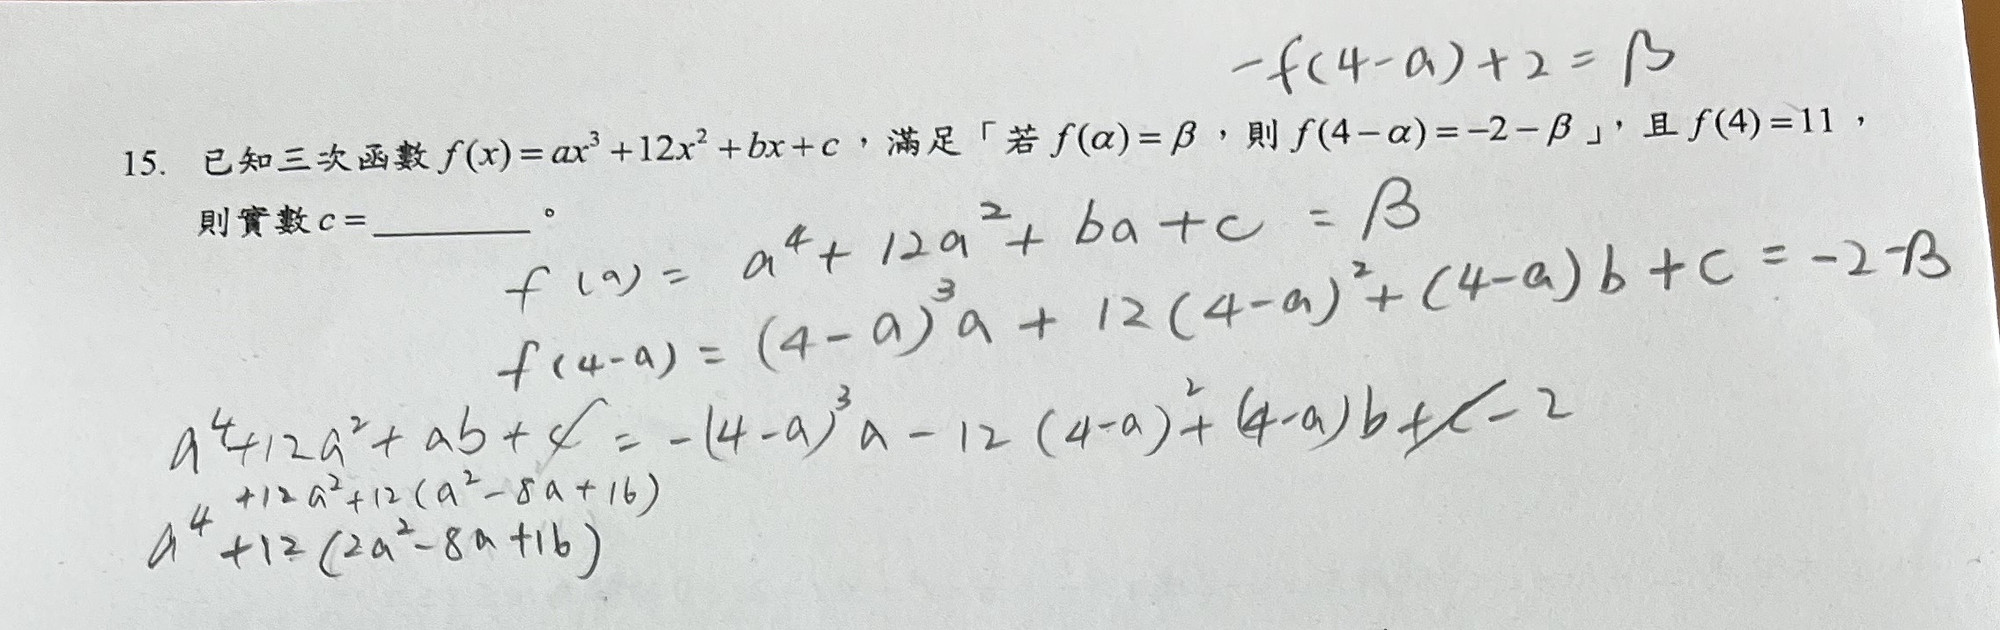 -f(4-a)+2=β
15. 已知三次函數 f(x)=ax³+12x²+bx+c，滿足「若 f(α)=β，則 f(4-α)=-2-β」，且 f(4)=11，
則實數 c=________。
f(a) = a⁴+12a²+ba+c = β
f(4-a) = (4-a)³a + 12(4-a)²+(4-a)b+c = -2-β
a⁴+12a²+ab+c = -(4-a)³a-12(4-a)²+(4-a)b+c-2
+12a²+12(a²-8a+16)
a⁴+12(2a²-8a+16)